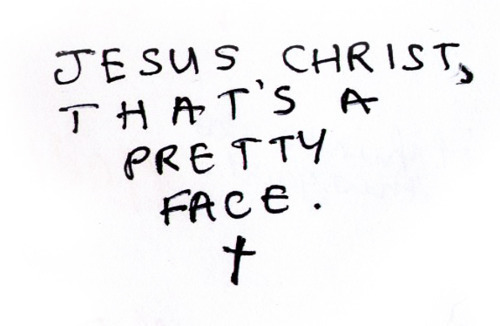 JESUS CHRIST,
THAT'S A
PRETTY
FACE.
†